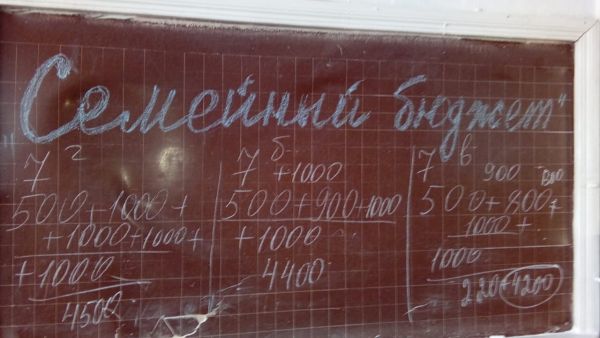 "Семейный бюджет"
7 г
500+1000+
+1000+1000+
+1000
4500
7 б
+1000
500+900+1000
+1000
4400
7 в
900
500+800+
1000+
1000
4200